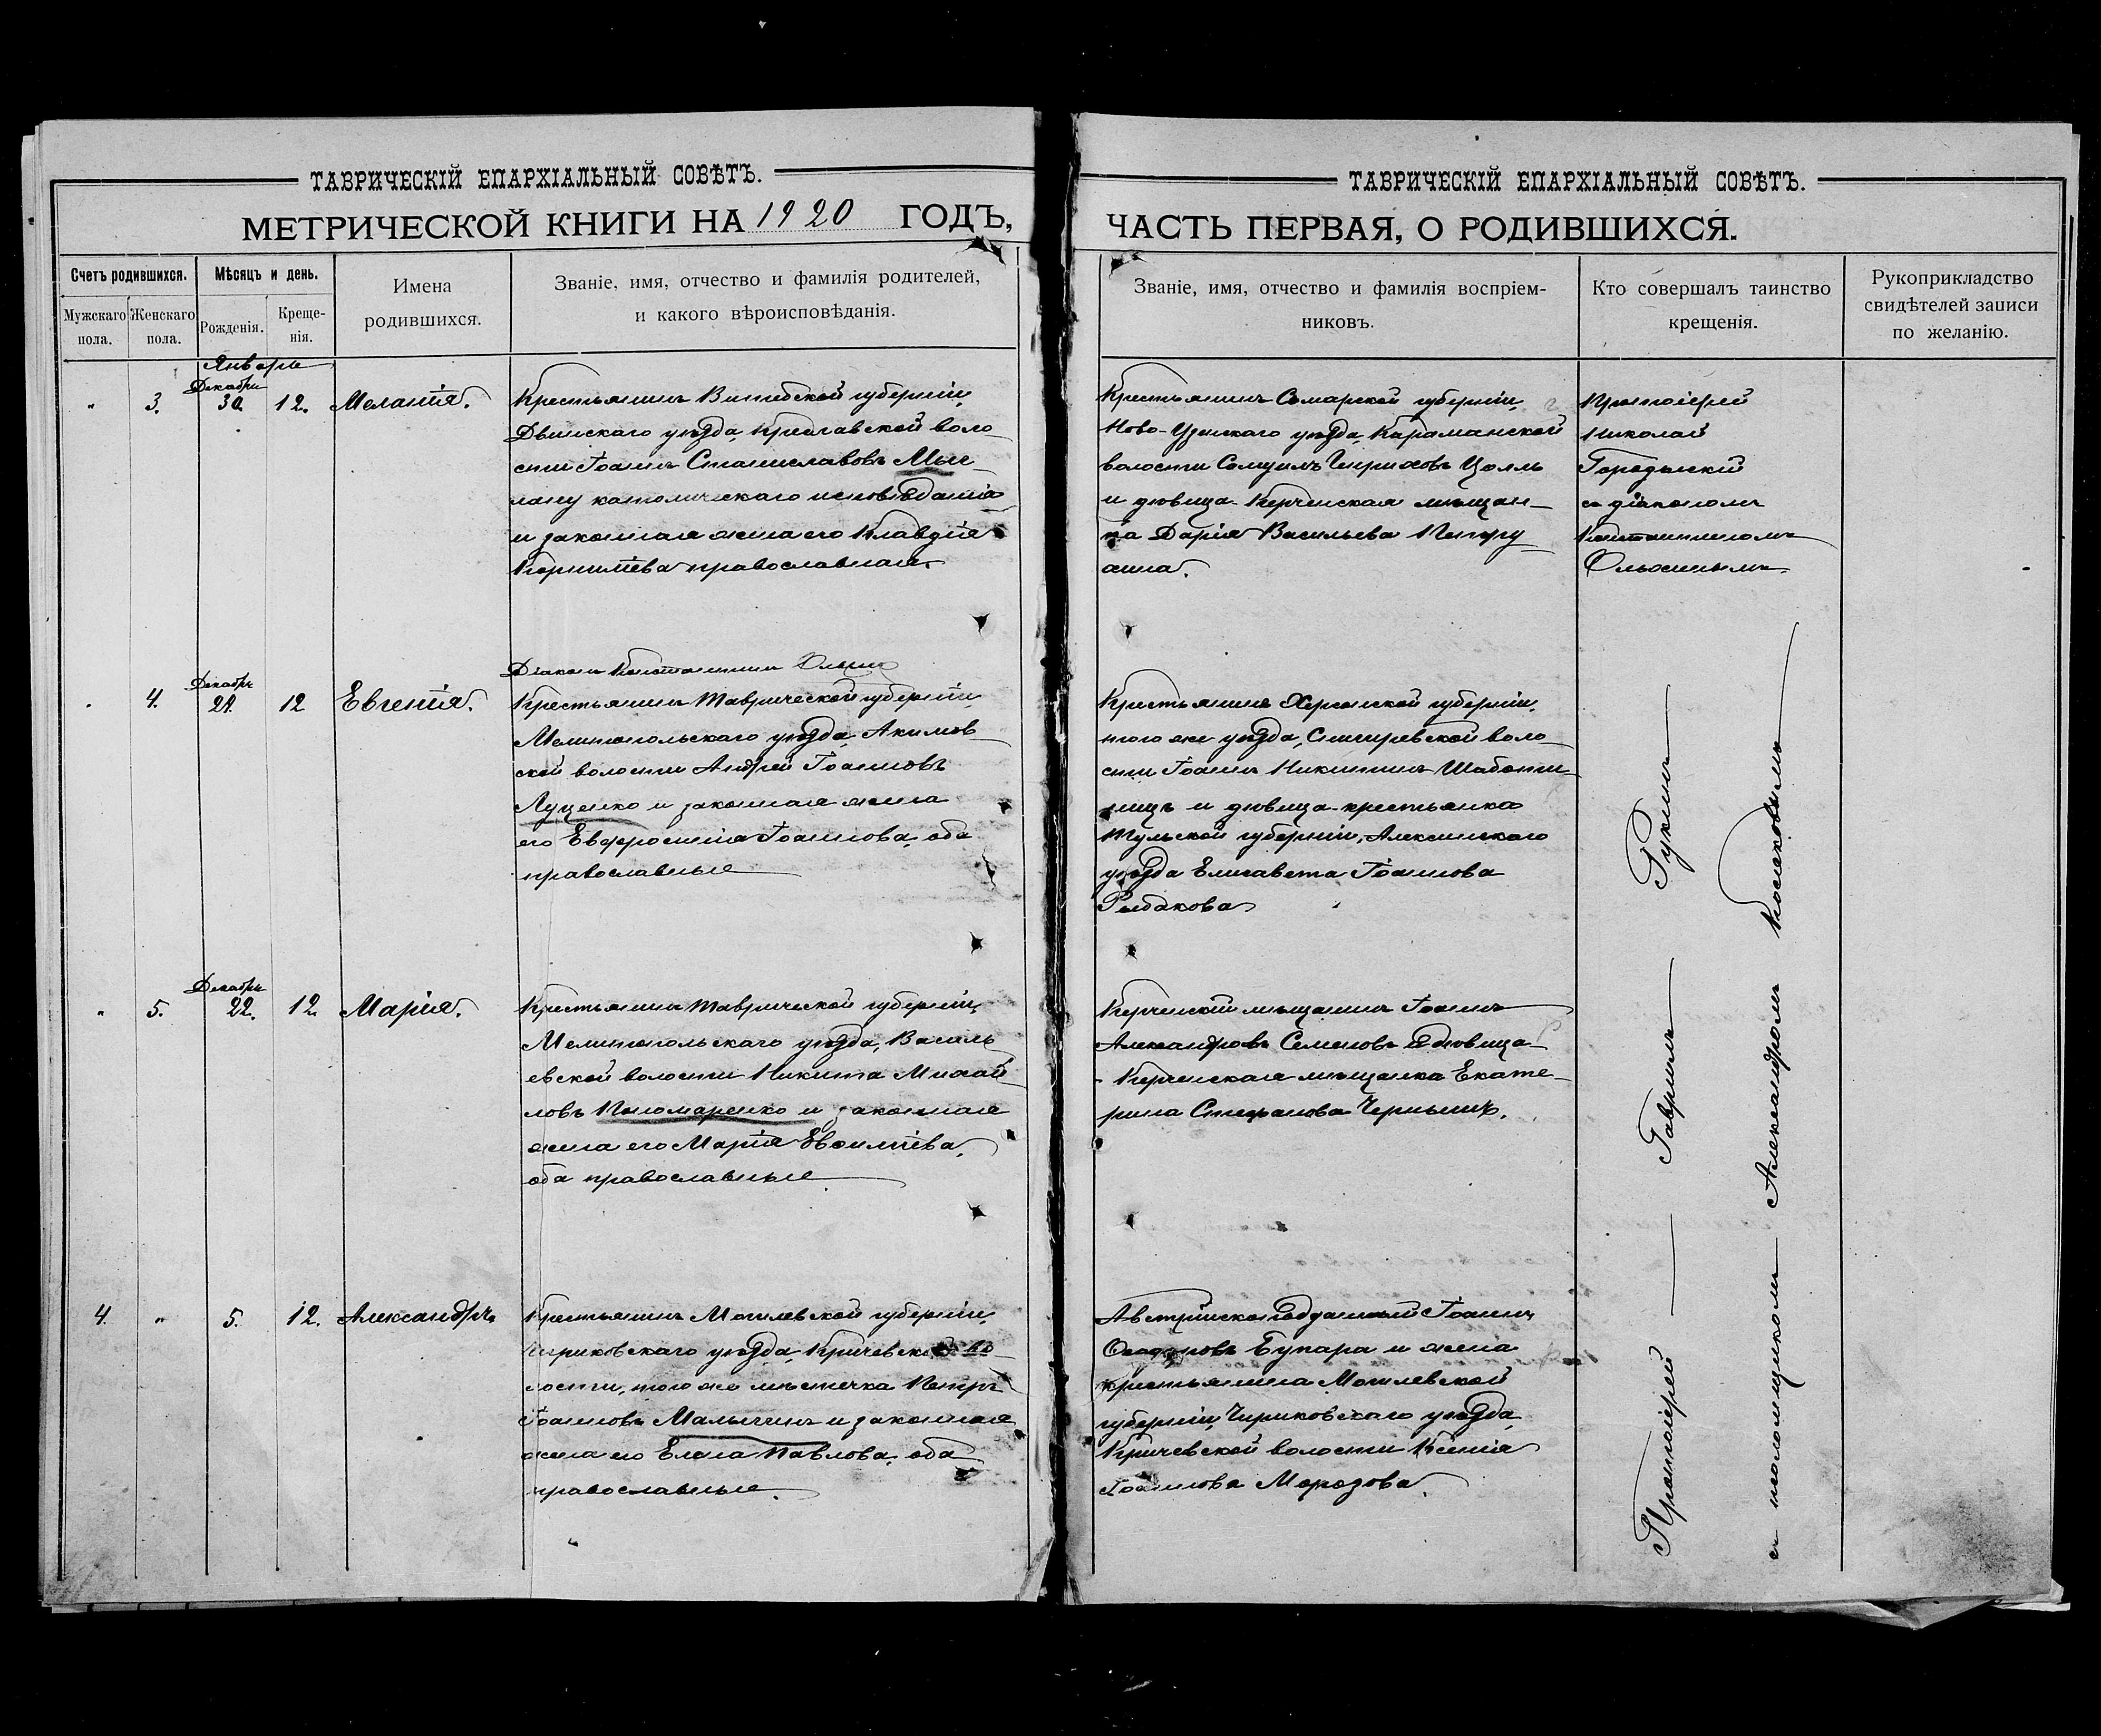 ТАВРИЧЕСКІЙ ЕПАРХІАЛЬНЫЙ СОВѢТЪ.
МЕТРИЧЕСКОЙ КНИГИ НА 1920 ГОДЪ,
Счетъ родившихся.
Мѣсяцъ и день.
Имена родившихся.
Званіе, имя, отчество и фамилія родителей,
и какого вѣроисповѣданія.
Мужскаго пола.
Женскаго пола.
Рожденія.
Креще-
нія.
Января
Декабря
" 3. 30. 12. Меланія.
Крестьянинъ Витебской губерніи,
Двинскаго уѣзда, волo-
сти Іоаннъ Станиславовъ
католическаго исповѣданія
и законная жена его Клавдія
Корниліева православная.
Діаконъ Константинъ
Декабря
4. 24. 12 Евгенія.
Крестьянинъ Таврической губерніи,
Мелитопольскаго уѣзда, Акимов-
ской волости Андрей Іоанновъ
Луценко и законная жена
его Евфросинія Іоаннова, оба
православные
Декабря
" 5. 22. 12. Марія.
Крестьянинъ Таврической губерніи,
Мелитопольскаго уѣзда, Василь-
евской волости Никита Михай-
ловъ Пономаренко и законная
жена его Марія
оба православные
4. " 5. 12. Александръ
Крестьянинъ Могилевской губерніи,
Чериковскаго уѣзда, Кричевской во-
лости, того же мѣстечка Петръ
Іоанновъ Малычинъ и законная
жена его Елена Павлова, оба
православные.
ТАВРИЧЕСКІЙ ЕПАРХІАЛЬНЫЙ СОВѢТЪ.
ЧАСТЬ ПЕРВАЯ, О РОДИВШИХСЯ.
Званіе, имя, отчество и фамилія воспріем-
никовъ.
Кто совершалъ таинство
крещенія.
Рукоприкладство
свидѣтелей записи
по желанію.
Крестьянинъ Самарской губерніи,
Ново-Узенскаго уѣзда, Караманской
волости Самуилъ Цолль
и дѣвица Керченская мѣщан-
ка Дарія Васильева
Протоіерей
Николай
Городынскій
съ діакономъ
Константиномъ
Крестьянинъ Херсонской губерніи,
того же уѣзда, Снигиревской воло-
сти Іоаннъ Никитинъ
и дѣвица крестьянка
Тульской губерніи, Алексинскаго
уѣзда Елисавета Іоаннова
Рыбакова
Керченскій мѣщанинъ Іоаннъ
Александровъ Семеновъ и дѣвица
Керченская мѣщанка Екате-
рина Стефанова Чернышъ.
Австрійскоподданный Іоаннъ
Бупара и жена
крестьянина Могилевской
губерніи, Чериковскаго уѣзда
Кричевской волости Ксенія
Іоаннова Морозова.
Протоіерей Гавріилъ
съ псаломщикомъ Александромъ